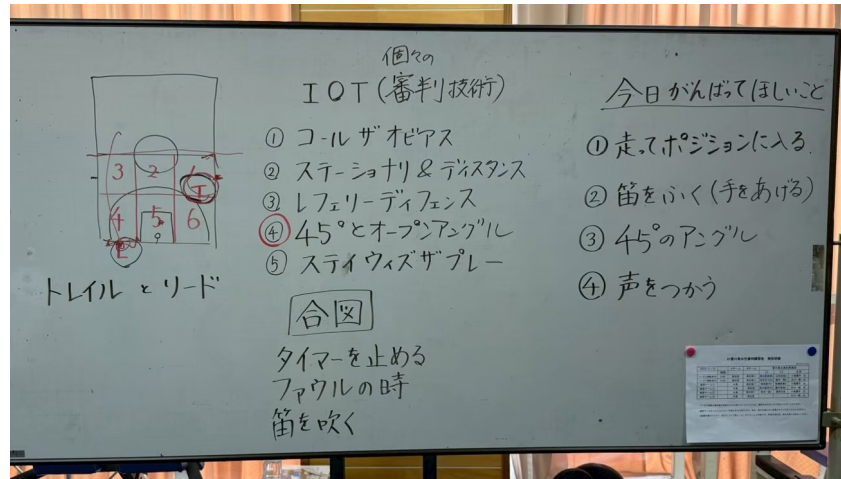 3 2 1
T
4 5 6
L
トレイル と リード
個々の
IOT(審判技術)
① コール ザ オビアス
② ステーショナリ & ディスタンス
③ レフェリーディフェンス
④ 45°とオープンアングル
⑤ ステイウィズザプレー
合図
タイマーを止める
ファウルの時
笛を吹く
今日がんばってほしいこと
① 走ってポジションに入る.
② 笛をふく(手をあげる)
③ 45°のアングル
④ 声をつかう